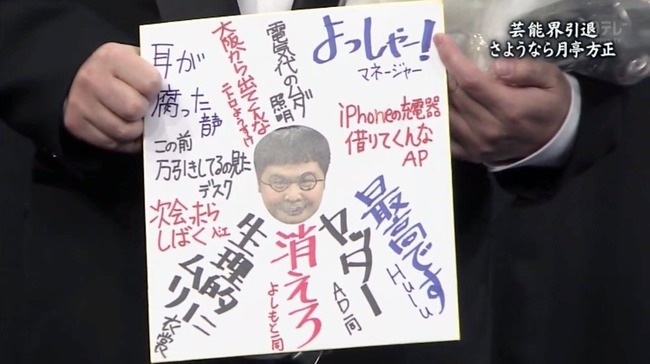 芸能界引退
さようなら月亭方正
よっしゃー!
マネージャー
電気代のムダ
照明
大阪から出てくんな
耳が
腐った
音声
この前
万引きしてるの見た
デスク
次会ったら
しばく
iPhoneの充電器
借りてくんな
AP
最高です
Hulu
ヤッター
AD一同
消えろ
よしもと一同
生理的に
ムリー
衣裳